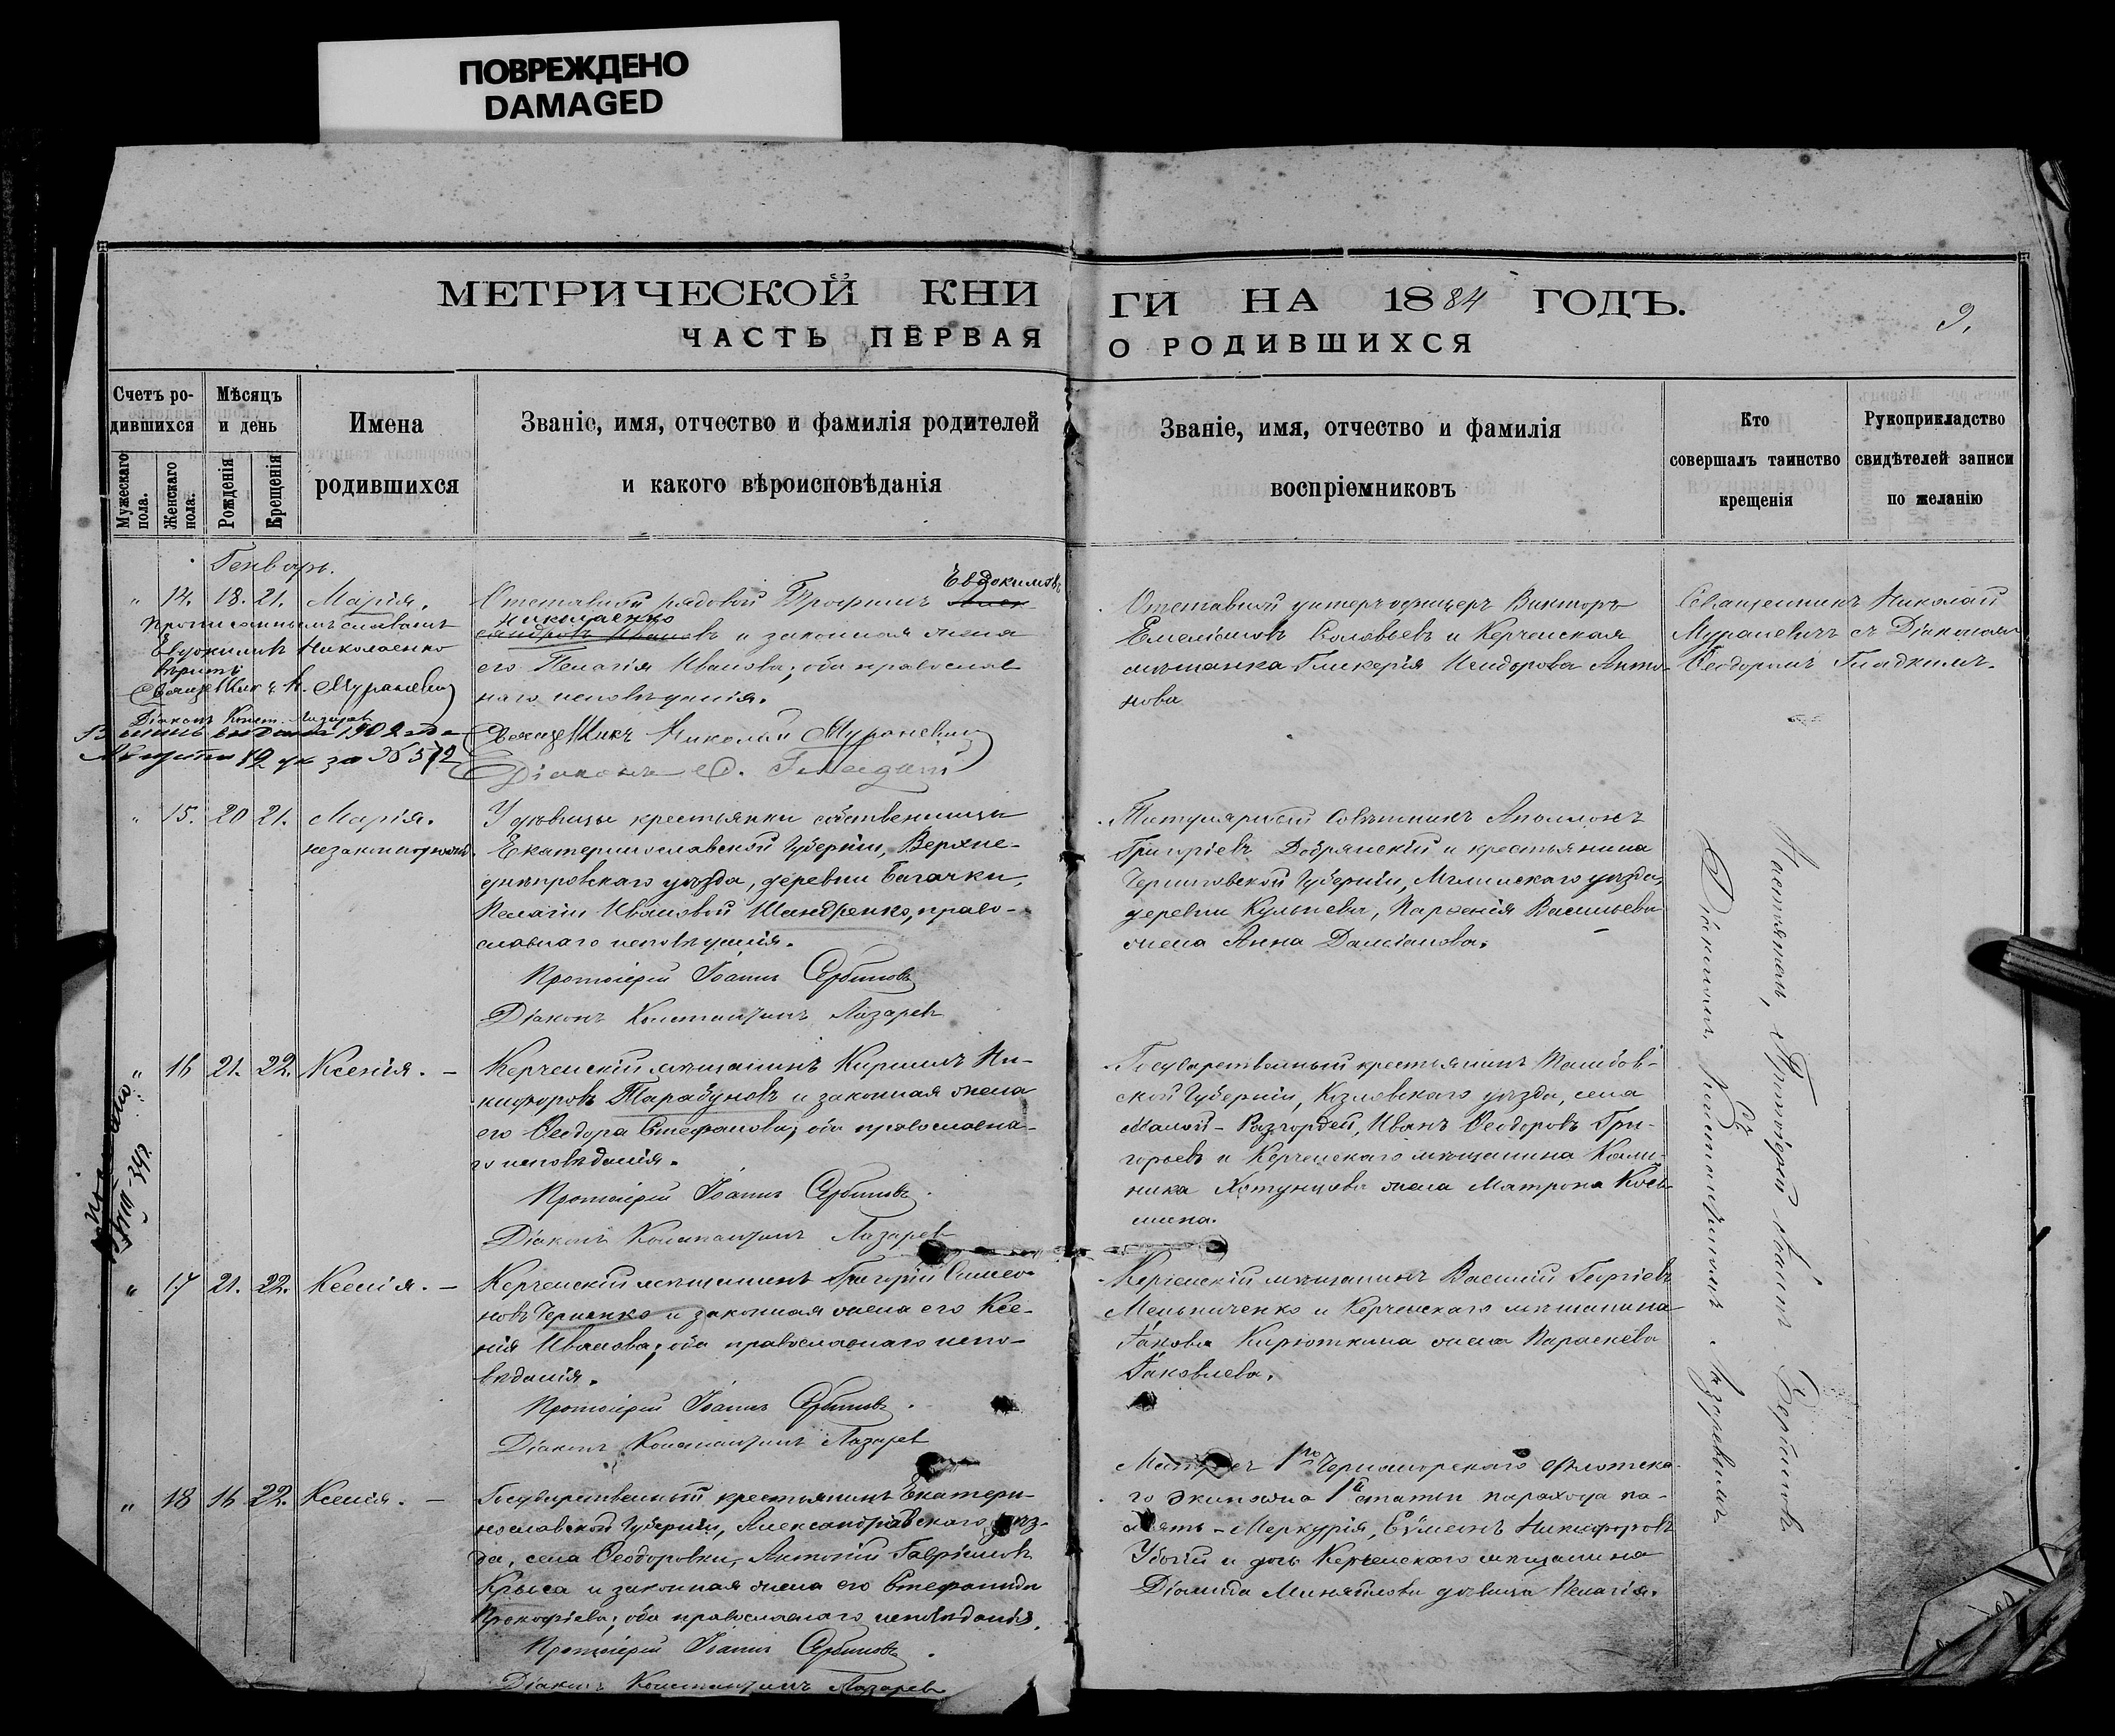 ПОВРЕЖДЕНО
DAMAGED
МЕТРИЧЕСКОЙ КНИ
ГИ НА 1884 ГОДЪ.
9.
ЧАСТЬ ПЕРВАЯ
О РОДИВШИХСЯ
Счетъ ро-
дившихся
Мужескаго пола.
Женскаго пола.
Мѣсяцъ
и день
Рожденія
Крещенія
Имена
родившихся
Званіе, имя, отчество и фамилія родителей
и какого вѣроисповѣданія
Званіе, имя, отчество и фамилія
воспріемниковъ
Кто
совершалъ таинство
крещенія
Рукоприкладство
свидѣтелей записи
по желанію
Генварь.
" 14. 18. 21. Марія.
Николаенко
Священникъ Н. Мураневич
Діаконъ Конст. Лазарев
1902 года
Августа 12 дня за № 572
Евдокимовъ
Отставной рядовой Трофимъ
Николаенко
и законная жена
его Пелагія Иванова; оба православ
наго исповѣданія.
Священникъ Николай Мураневич
Діаконъ Ѳ.
Отставной унтеръ офицеръ Викторъ
Емельяновъ Соловьевъ и Керченская
мѣщанка Гликерія Исидорова Анто-
нова
Священникъ Николай
Мураневичъ съ Діакономъ
Ѳеодоромъ
" 15. 20 21. Марія.
незаконнорожд.
крестьянки собственницы
Екатеринославской Губерніи, Верхне-
днѣпровскаго уѣзда, деревни
Пелагіи Ивановой Шандренко, право-
славнаго исповѣданія.
Протоіерей Іоаннъ Сербиновъ
Діаконъ Константинъ Лазаревъ
Титулярный Совѣтникъ Аполлонъ
Григоріевъ Добрянскій и крестьянина
Черниговской Губерніи, Мглинскаго уѣзда,
деревни Парѳенія Васильева
жена Анна Даміанова.
" 16 21. 22. Ксенія. –
Керченскій мѣщанинъ Кириллъ Ни-
кифоровъ Тарабуновъ и законная жена
его Ѳеодора Стефанова; оба православна-
го исповѣданія.
Протоіерей Іоаннъ Сербиновъ.
Діаконъ Константинъ Лазаревъ
Государственный крестьянинъ Тамбов-
ской Губерніи, Козловскаго уѣзда, села
Иванъ Ѳеодоровъ Гри-
горьевъ и Керченскаго мѣщанина
жена Матрона Кось-
мина.
" 17 21. 22. Ксенія. –
Керченскій мѣщанинъ Григорій Симео-
новъ Черненко и законная жена его Ксе-
нія Иванова; оба православнаго испо-
вѣданія.
Протоіерей Іоаннъ Сербиновъ.
Діаконъ Константинъ Лазарев
Керченскій мѣщанинъ Василій Георгіевъ
Мельниченко и Керченскаго мѣщанина
Іакова Кирюткина жена Параскева
Іаковлева.
" 18 16 22. Ксенія. –
Государственный крестьянинъ Екатери-
нославской Губерніи, Александровскаго уѣз-
да, села Ѳеодоровки, Антоній Гавріиловъ
Крыса и законная жена его Стефанида
Прокофіева; оба православнаго исповѣданія.
Протоіерей Іоаннъ Сербиновъ.
Діаконъ Константинъ Лазаревъ
Матросъ 1го Черноморскаго флотска-
го экипажа 1й статьи парохода па-
мять-Меркурія, Симеонъ Никифоровъ
Убогій и дочь Керченскаго мѣщанина
дѣвица Пелагія.
Настоятель, Протоіерей Іоаннъ Сербиновъ
съ
Діакономъ Константиномъ Лазаревымъ.